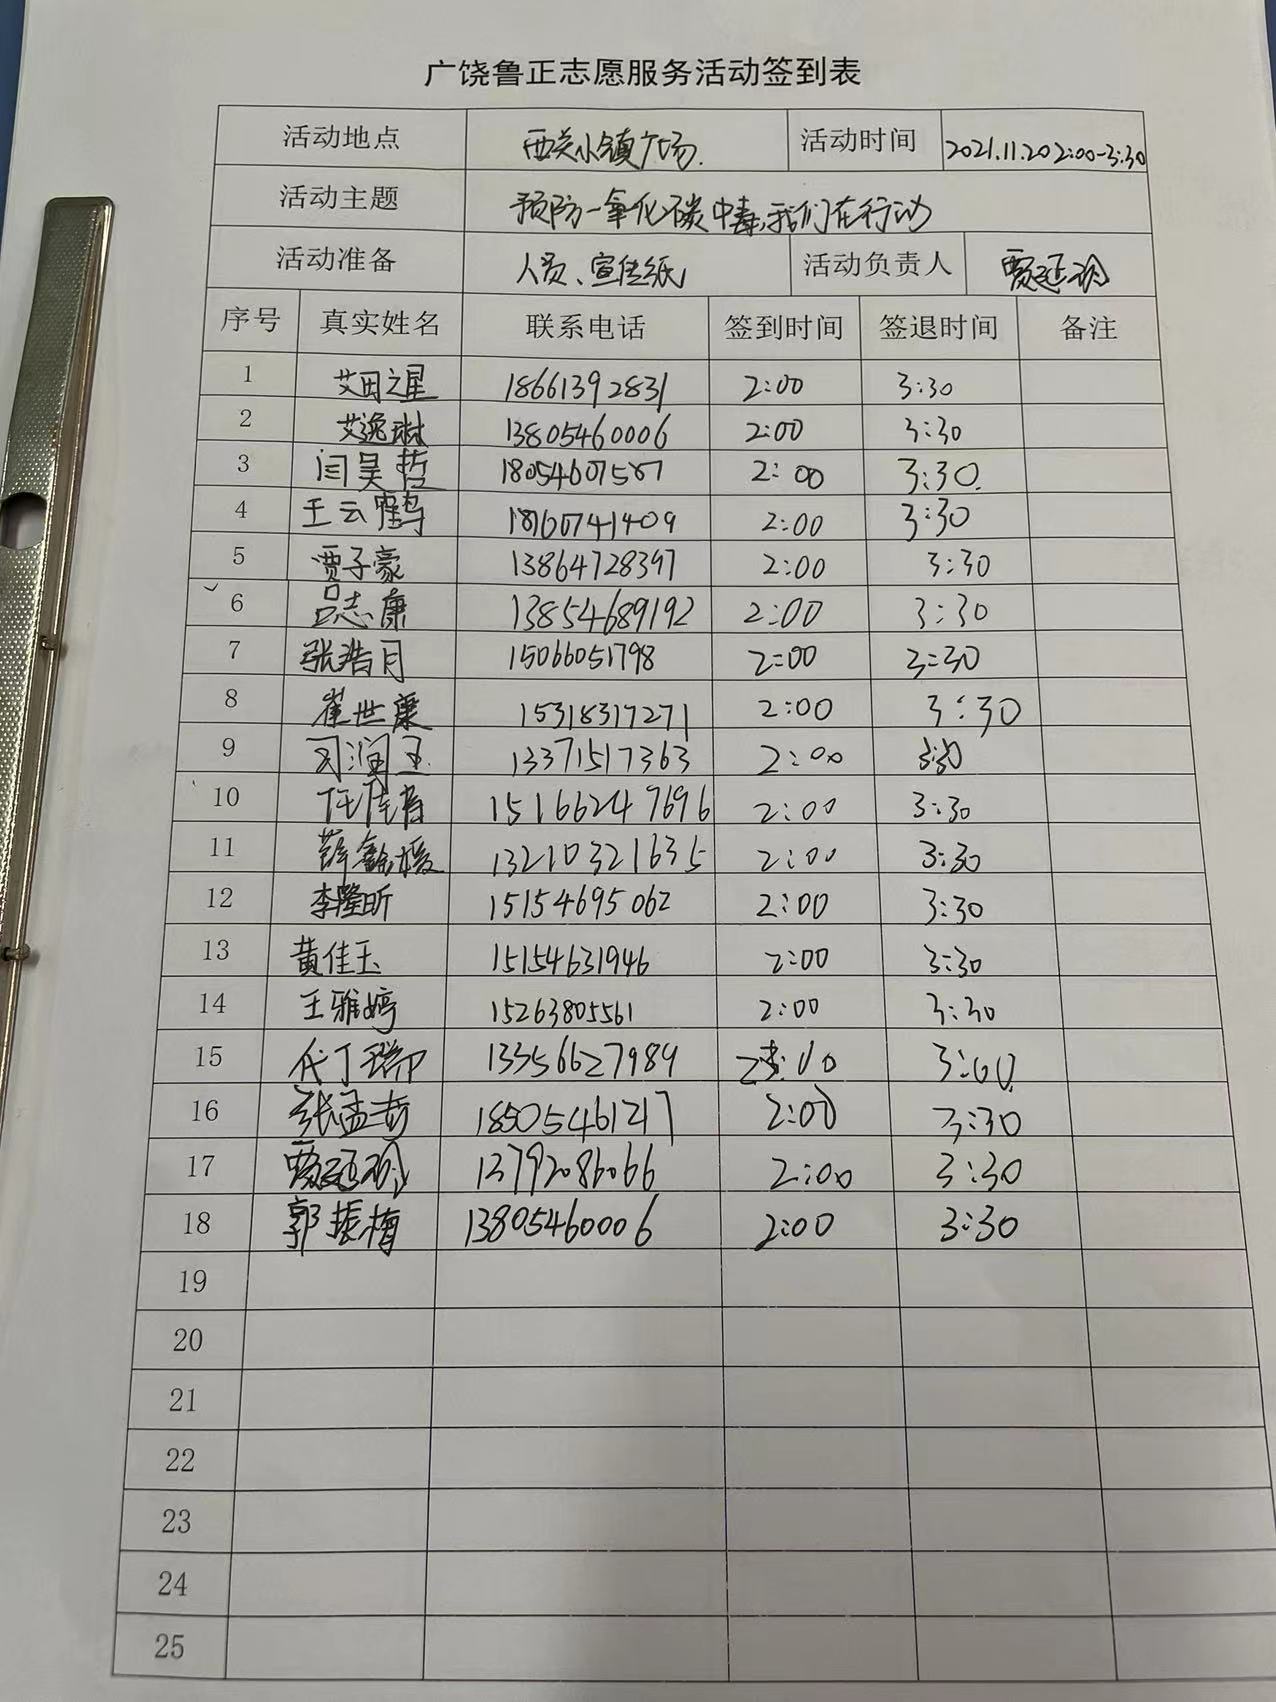 广饶鲁正志愿服务活动签到表
活动地点 西关小镇广场. 活动时间 2021.11.20 2:00-3:30
活动主题 预防一氧化碳中毒,我们在行动
活动准备 人员、宣传纸 活动负责人 贾延
序号 真实姓名 联系电话 签到时间 签退时间 备注
1 艾田之星 18661392831 2:00 3:30
2 艾逸琳 13805460006 2:00 3:30
3 闫昊哲 18054607567 2:00 3:30.
4 王云鹤 18160741409 2:00 3:30
5 贾子豪 13864728397 2:00 3:30
6 吕志康 13854689192 2:00 3:30
7 张浩月 15066051798 2:00 3:30
8 崔世康 15318317271 2:00 3:30
9 润玉 13371517363 2:00 3:30
10 任佳 15166247696 2:00 3:30
11 薛鑫媛 13210321635 2:00 3:30
12 李隆昕 15154695062 2:00 3:30
13 黄佳玉 15154631946 2:00 3:30
14 王雅婷 15263805561 2:00 3:30
15 代丁瑞 13356627989 3:00
16 张孟哲 18505461217 2:00 3:30
17 贾延 13792086066 2:00 3:30
18 郭振梅 13805460006 2:00 3:30
19
20
21
22
23
24
25